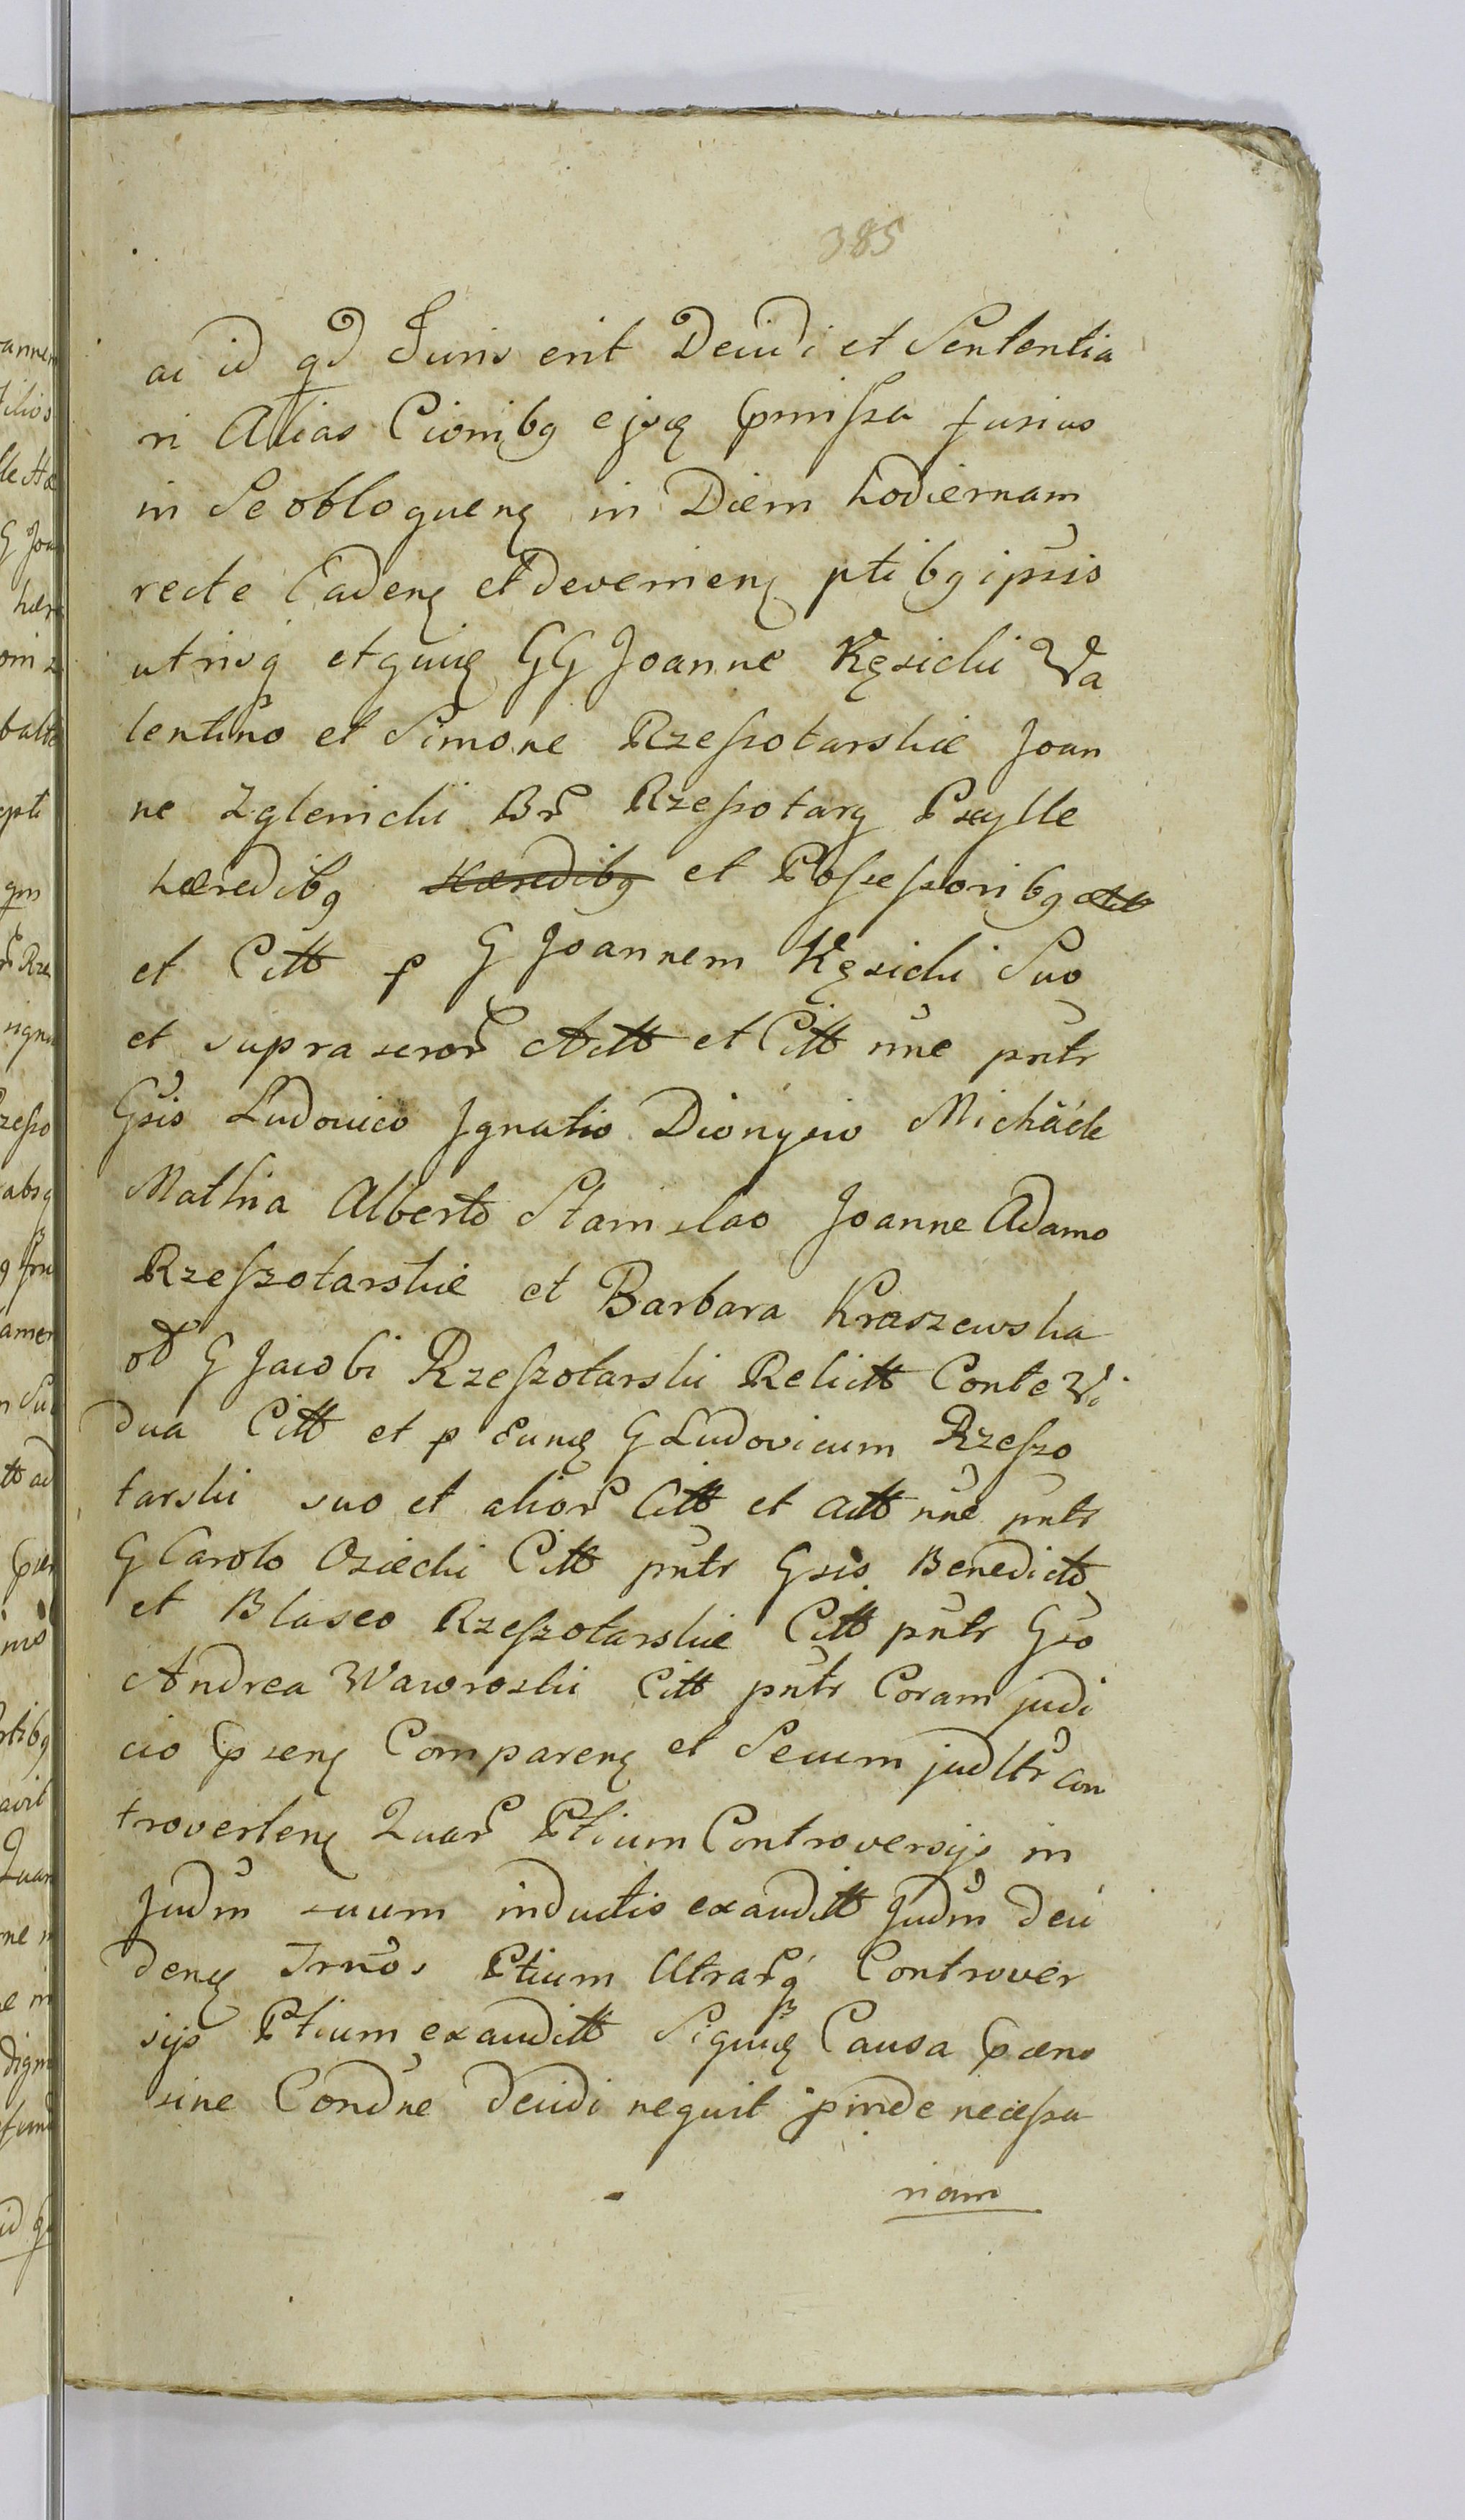 385
ac id qd Juris erit Decidi et Sententia
ri Alias Cionibq ejsq pmissa fusius
in Se obloquenq in Diem hodiernam
recte Cadenq et Devenienq ptibq ipsis
utrisq GG Joanne Kęsicki Va
lentino et Simone Rzeszotarskie Joan
ne Zglenicki Br Rzeszotarq Pszylle
hæredibq hæredibq et Possessoribq
et Citt p G Joannem Kęsicki Suo
et supra scror Actt et Citt nne pntr
Gsis Ludovico Ignatio Dionysio Michaele
Mathia Alberto Stanislao Joanne Adamo
Rzeszotarskie et Barbara Kraszewska
od G Jacobi Rzeszotarski Relictt Conte Vi
dua Citt et p Eunq G Ludovicum Rzeszo
tarski suo et alior Citt et Actt nne pntr
G Carolo Osiecki Citt pntr Gsis Benedicto
et Blaseo Rzeszotarskie Citt pntr Gso
Andrea Wawroski Citt pntr Coram judi
cio psenq Comparenq et Secum judltr con
trovertenq Quar Ptium Controversijs in
Judm suum inductis exauditt Judm deci
denq Trnos Ptium Utrarq Controver
sijs Ptium exauditt Siquiq Causa pæns
sine Condne decidi nequit pinde necessa
riam